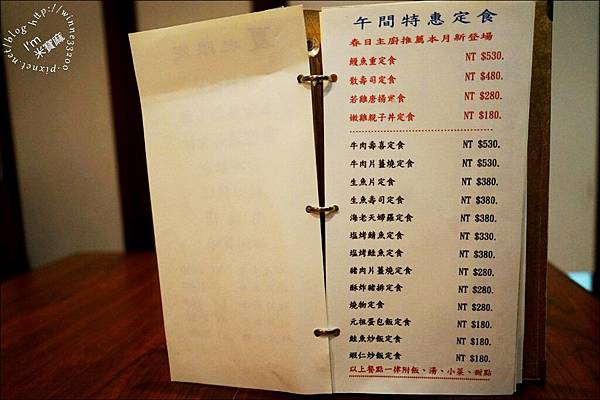 http://winne33200.pixnet.net/blog
I'm
米寶麻
午間特惠定食
春日主廚推薦本月新登場
鰻魚重定食 NT $530.
散壽司定食 NT $480.
若雞唐揚定食 NT $280.
嫩雞親子丼定食 NT $180.
牛肉壽喜定食 NT $530.
牛肉片薑燒定食 NT $530.
生魚片定食 NT $380.
生魚壽司定食 NT $380.
海老天婦羅定食 NT $380.
塩烤鯖魚定食 NT $330.
塩烤鮭魚定食 NT $380.
豬肉片薑燒定食 NT $280.
酥炸豬排定食 NT $280.
燒物定食 NT $280.
元祖蛋包飯定食 NT $180.
鮭魚炒飯定食 NT $180.
蝦仁炒飯定食 NT $180.
以上餐點一律附飯、湯、小菜、甜點